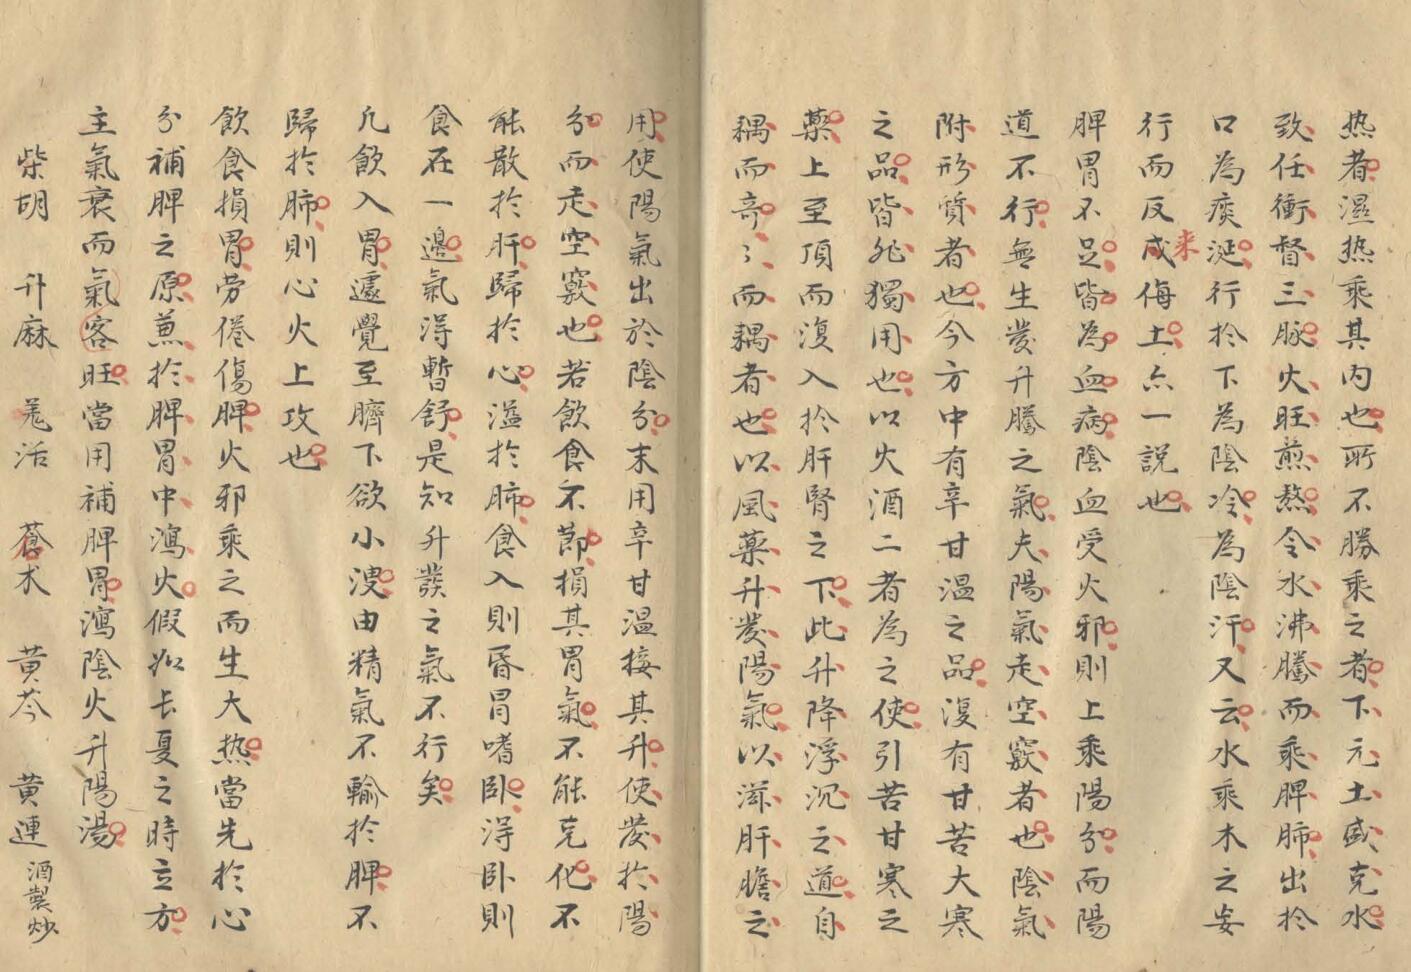 热者湿热乘其内也所不勝乘之者下元土盛克水
致任衝督三脉火旺煎熬令水沸騰而乘脾肺出扵
口為痰涎行扵下為陰冷為陰汗又云水乘木之妄
行而反咸来侮土亦一説也
脾胃不足皆為血病陰血受火邪則上乘陽分而陽
道不行無生發升騰之氣夫陽氣走空竅者也陰氣
附形質者也今方中有辛甘温之品復有甘苦大寒
之品皆非獨用也以火酒二者為之使引苦甘寒之
藥上至頂而復入扵肝腎之下此升降浮沉之道自
耦而竒〻而耦者也以風藥升發陽氣以滋肝膽之
用使陽氣出於陰分末用辛甘温接其升使發扵陽
分而走空竅也若飲食不節損其胃氣不能克化不
能散扵肝歸扵心溢扵肺食入則昏冒嗜卧淂卧則
食在一邊氣淂暫舒是知升發之氣不行矣
凡飲入胃遽覺至臍下欲小溲由精氣不輸扵脾不
歸扵肺則心火上攻也
飲食損胃劳倦傷脾火邪乘之而生大热當先扵心
分補脾之原蒽扵脾胃中瀉火假如长夏之時立方
主氣衰而氣客旺當用補脾胃瀉陰火升陽湯
柴胡 升麻 羗活 蒼术 黄芩 黄連酒製炒